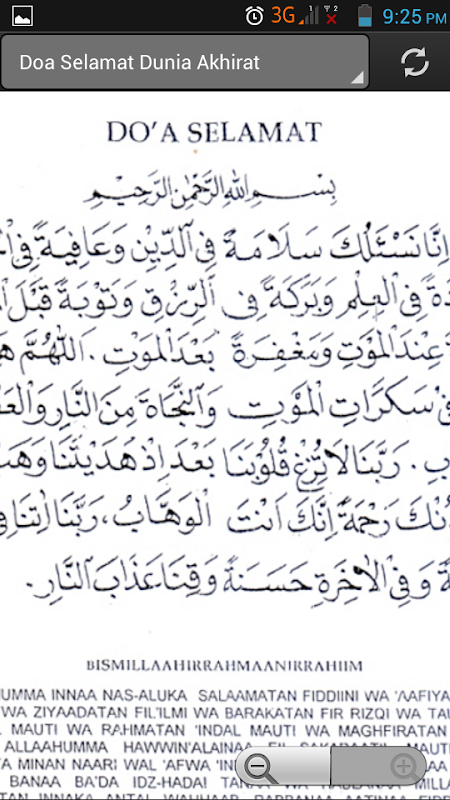 3G 9:25 PM
Doa Selamat Dunia Akhirat
DO'A SELAMAT
بِسْمِ اللهِ الرَّحْمٰنِ الرَّحِيْمِ
اِنَّا نَسْئَلُكَ سَلَامَةً فِى الدِّيْنِ وَعَافِيَةً فِى
فِى الْعِلْمِ وَبَرَكَةً فِى الرِّزْقِ وَتَوْبَةً قَبْلَ
عِنْدَ الْمَوْتِ وَمَغْفِرَةً بَعْدَ الْمَوْتِ. اَللّٰهُمَّ
سَكَرَاتِ الْمَوْتِ وَالنَّجَاةَ مِنَ النَّارِ
رَبَّنَا لَا تُزِغْ قُلُوْبَنَا بَعْدَ اِذْ هَدَيْتَنَا وَهَبْ
رَحْمَةً اِنَّكَ اَنْتَ الْوَهَّابُ، رَبَّنَا اٰتِنَا
وَفِى الْاٰخِرَةِ حَسَنَةً وَقِنَا عَذَابَ النَّارِ.
BISMILLAAHIRRAHMAANIRRAHIIM
HUMMA INNAA NAS-ALUKA SALAAMATAN FIDDIINI WA 'AAFIYA
WA ZIYAADATAN FIL'ILMI WA BARAKATAN FIR RIZQI WA TAU
MAUTI WA RAHMATAN 'INDAL MAUTI WA MAGHFIRATAN
ALLAAHUMMA HAWWIN'ALAINAA FII SAKARAATIL MAUTI
TA MINAN NAARI WAL 'AFWA 'IND
BANAA BA'DA IDZ-HADAI